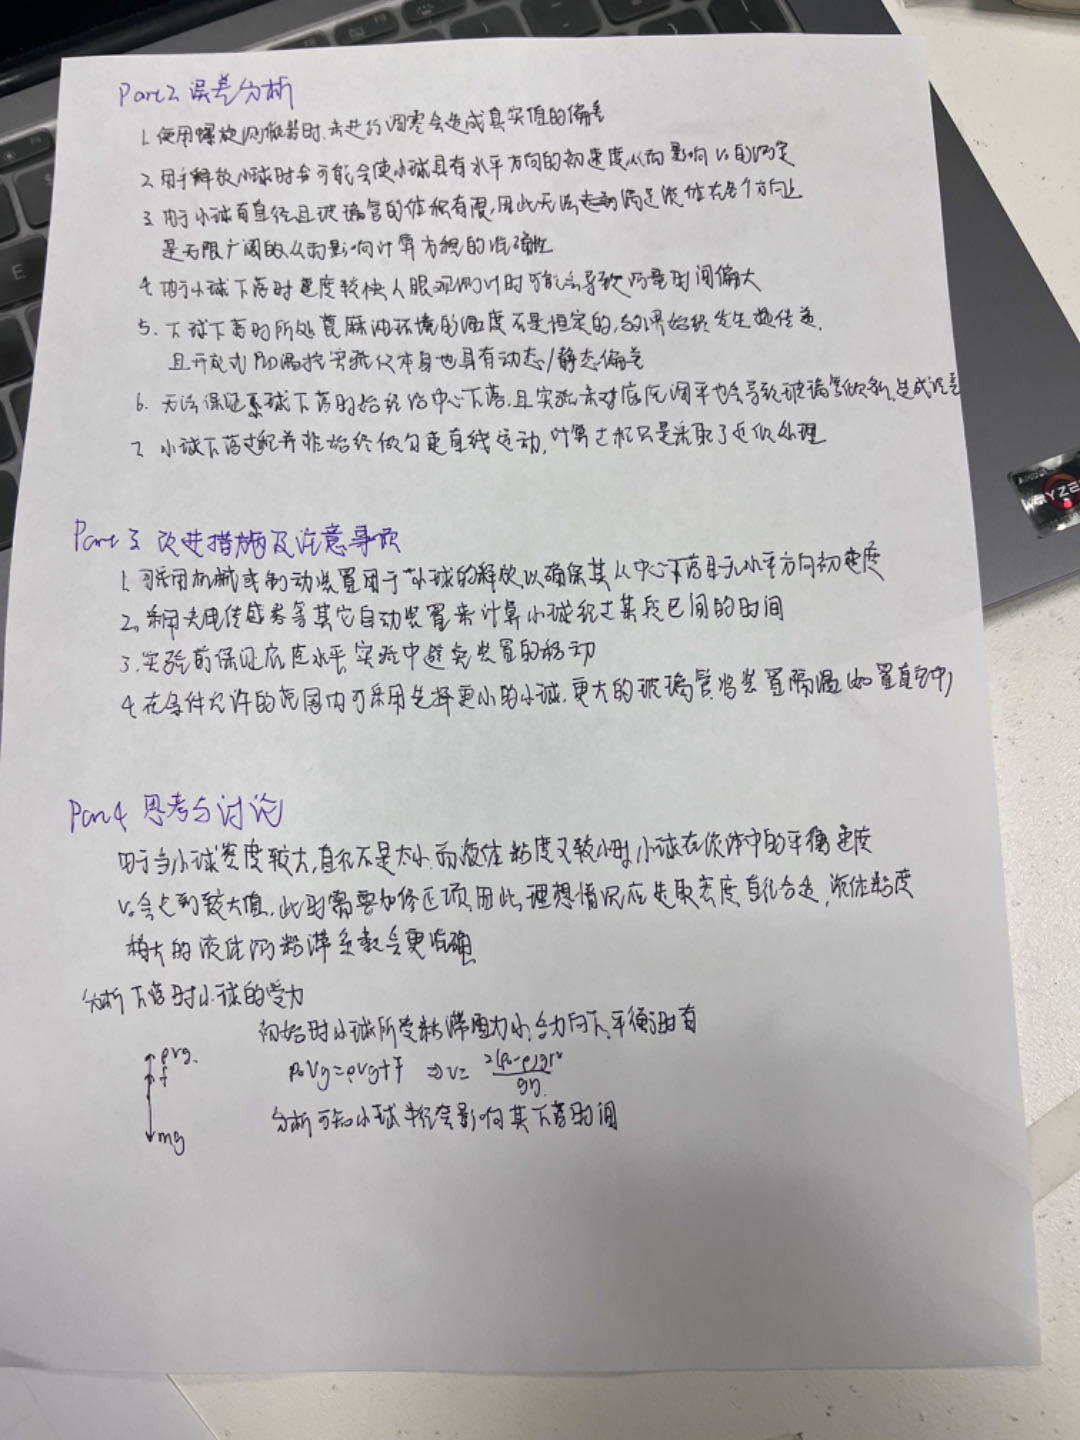 Part2 误差分析
1. 使用螺旋测微器时,未进行调零会造成真实值的偏差
2. 用手释放小球时会可能会使小球具有水平方向的初速度从而影响v₀的测定
3. 由于小球有直径且玻璃管的体积有限,因此无法满足液体在各个方向上
是无限广阔的从而影响计算方程的准确性
4. 由于小球下落时速度较快人眼观测计时可能会导致测量时间偏大
5. 下球下落时所处蓖麻油环境的温度不是恒定的,与外界始终发生热传递,
且开放式PID温控实验仪本身也具有动态/静态偏差
6. 无法保证小球下落时始终沿中心下落,且实验未对底座调平也会导致玻璃管倾斜,造成误差
7. 小球下落过程并非始终做匀速直线运动,计算过程只是采取了近似处理
Part3 改进措施及注意事项
1. 可采用机械或制动装置用于小球的释放,以确保其从中心下落且无水平方向初速度
2. 采用光电传感器等其它自动装置来计算小球经过某段区间的时间
3. 实验前保证底座水平,实验中避免装置的移动
4. 在条件允许的范围内可采用选择更小的小球,更大的玻璃管,将装置隔温(如置真空中)
Part4 思考与讨论
由于当小球密度较大,直径不是太小,而液体粘度又较小时,小球在液体中的平衡速度
v₀会达到较大值,此时需要加修正项,因此,理想情况应选取密度,直径合适,液体粘度
稍大的液体测粘滞系数会更准确
分析下落时小球的受力
初始时小球所受粘滞阻力小,合力向下,平衡时有
ρvg
f
ρ₀Vg=ρVg+f ⇒v= 2(ρ₀-ρ)gr²/9η
mg
分析可知小球半径会影响其下落时间
RYZE